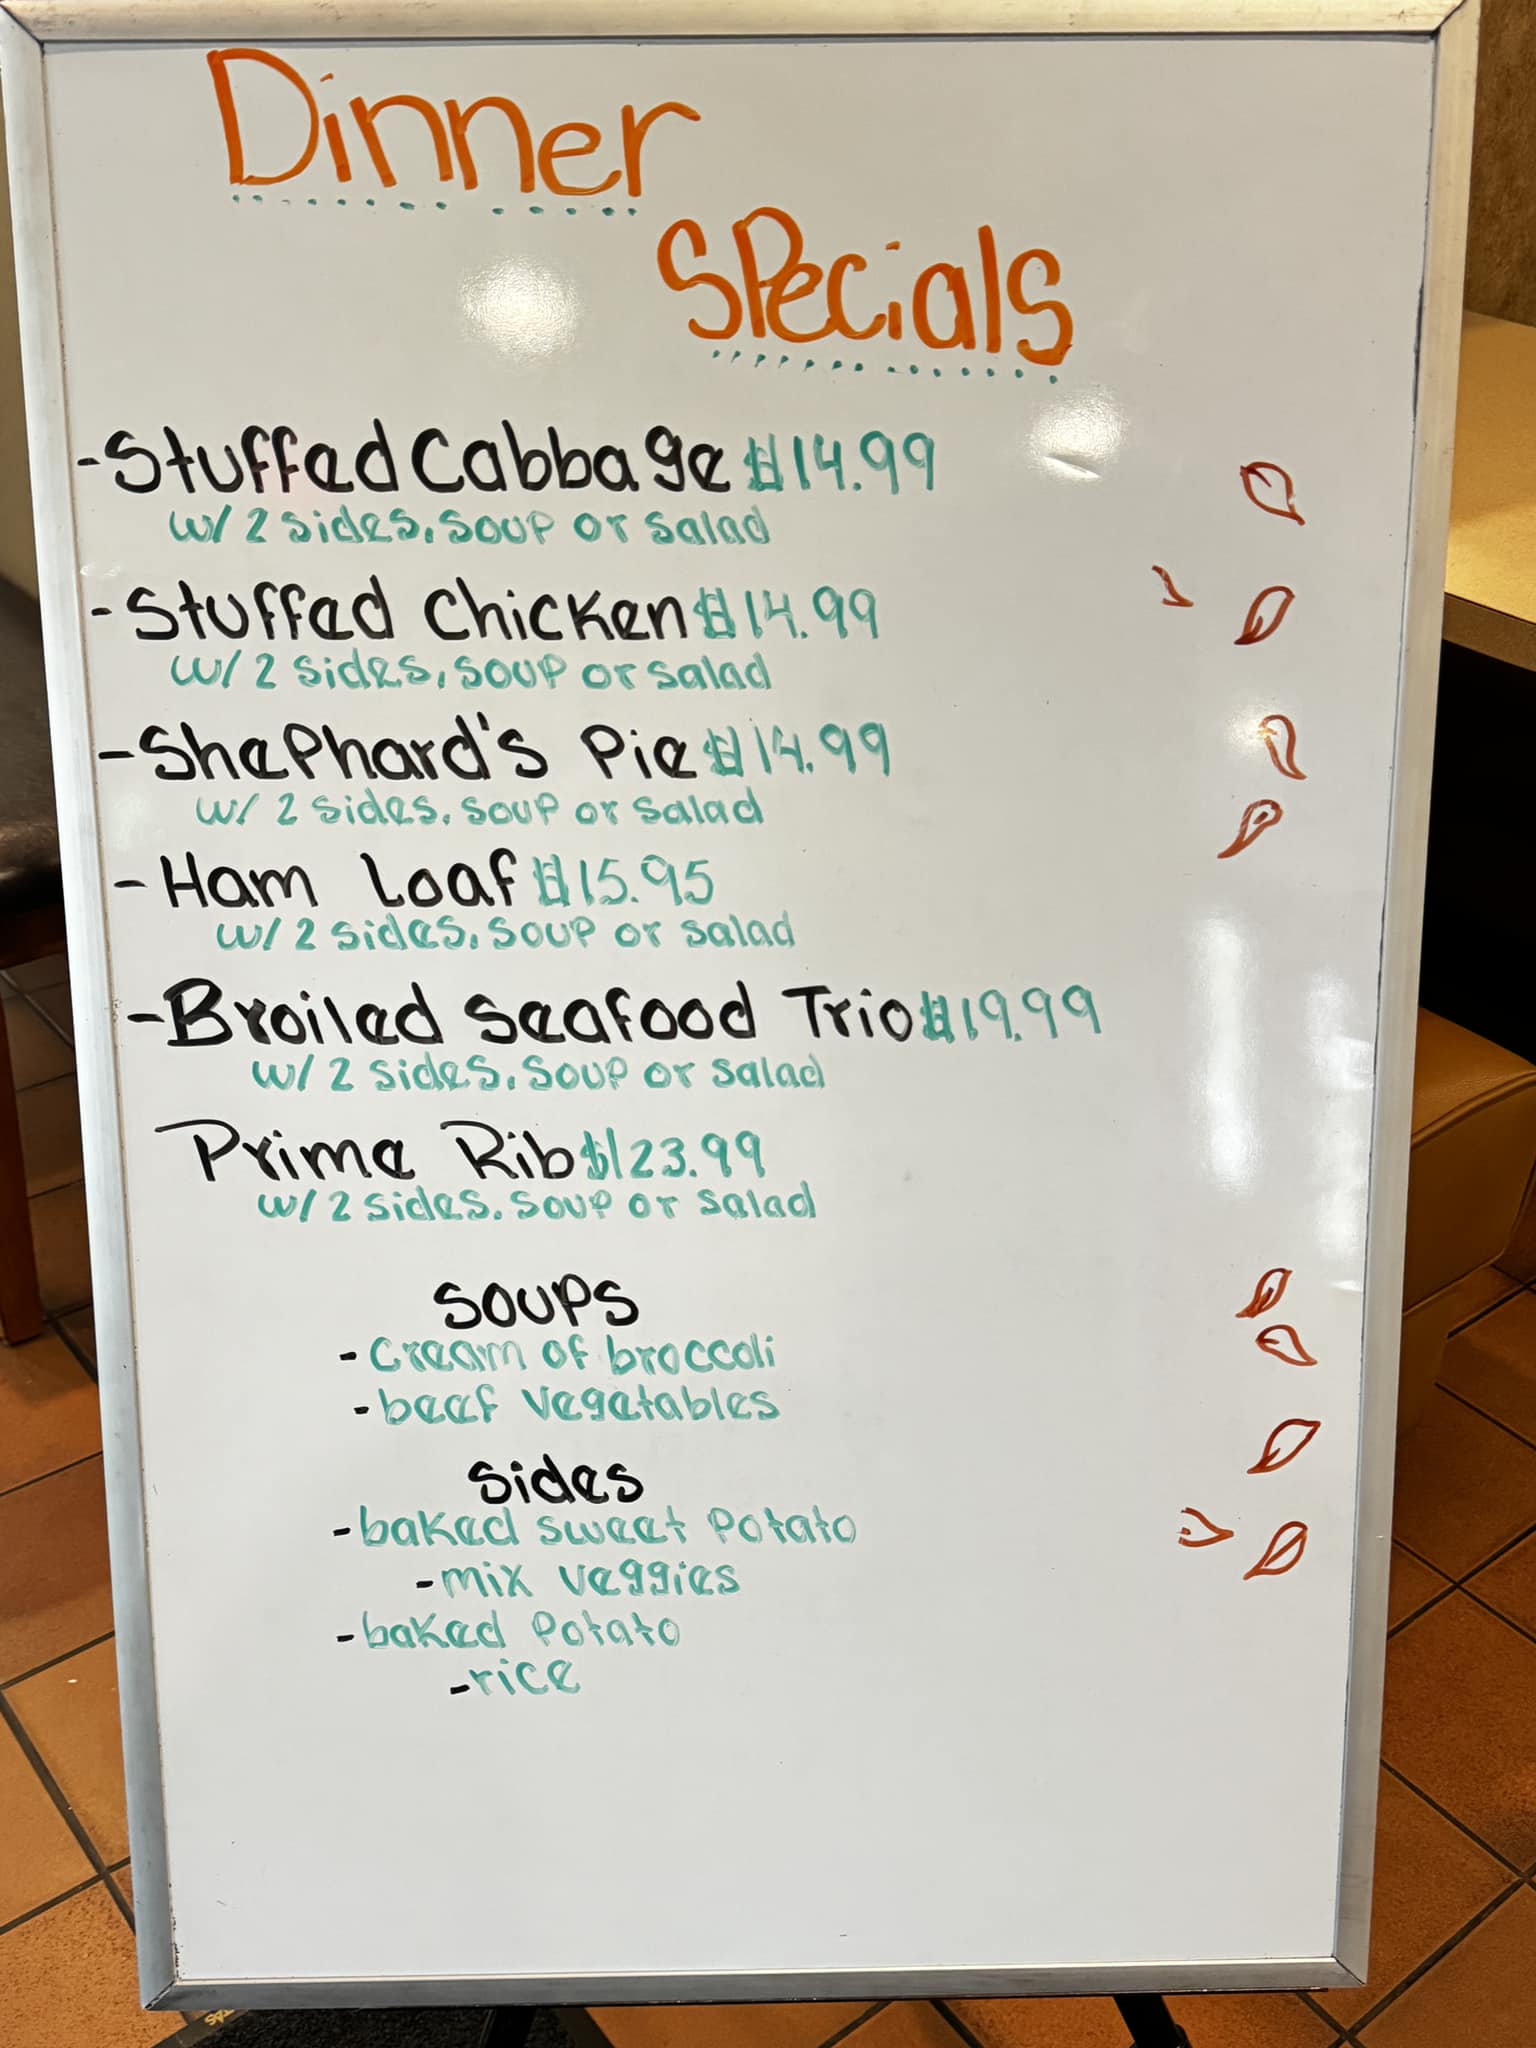 Dinner
Specials
-Stuffed Cabbage $14.99
w/ 2 sides, soup or salad
-Stuffed Chicken $14.99
w/ 2 sides, soup or salad
-Shephard's Pie $14.99
w/ 2 sides, soup or salad
-Ham Loaf $15.95
w/ 2 sides, soup or salad
-Broiled Seafood Trio $19.99
w/ 2 sides, soup or salad
Prime Rib $23.99
w/ 2 sides, soup or salad
Soups
-Cream of broccoli
-beef vegetables
Sides
-baked sweet potato
-mix veggies
-baked potato
-rice